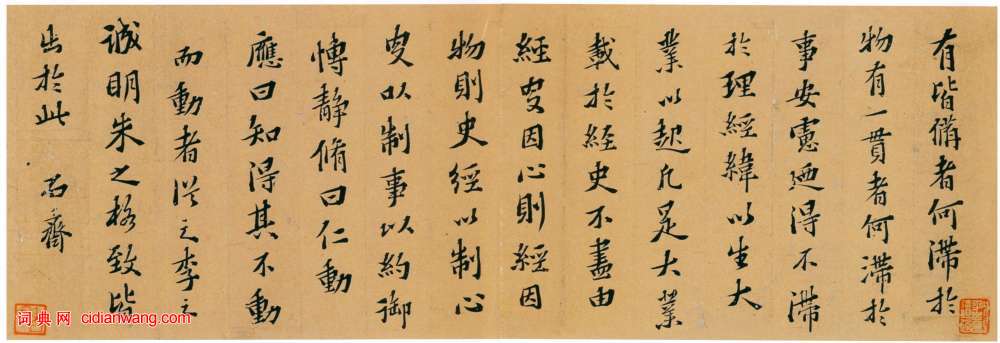 有皆備者何滯於
物有一貫者何滯於
事安慮廼得不滯
於理經緯以生大
業以起凡是大業
載於經史不盡由
經史因心則經因
物則史經以制心
史以制事以約御
愽靜脩曰仁動
應曰知得其不動
而動者從之李之
誠明朱之格致皆
出於此 齋
词典网 cidianwang.com